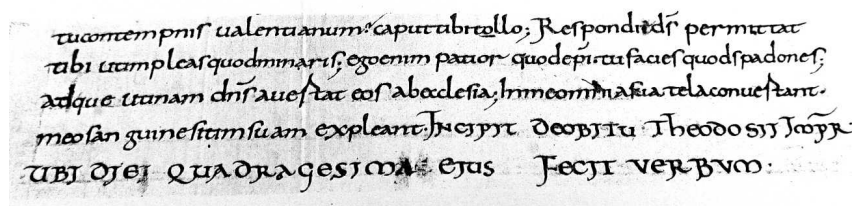 tu contempnis ualentianum? caput tibi tollo; Respondi d̄s permittat
tibi ut impleas quod minaris; ego enim patior quod ep̄i tu facies quod spadones;
adque utinam dn̄s auertat eos ab ecclesia; In me omnia sua tela conuertant·
meo sanguine sitim suam expleant· INCIPIT DE OBITU THEODOSII IMP̄R
UBI DIEI QUADRAGESIMA EIUS FECIT VERBVM·